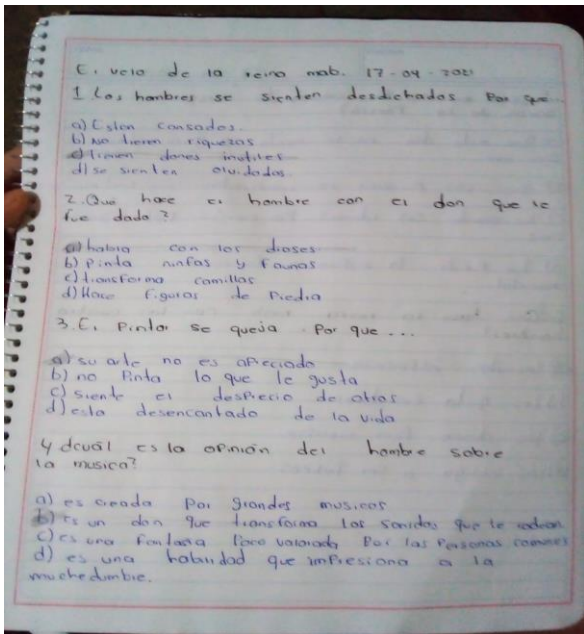 E. velo de la reina mab. 17-04-2021
1 Los hombres se sienten desdichados Por que...
a) Esten cansados.
b) No tienen riquezas
c) tienen dones inutiles
d) se sienten olvidados
2. Que hace el hombre con el don que le
fue dado?
a) habla con los dioses
b) Pinta ninfas y faunos
c) transforma camillas
d) Hace figuras de Piedra
3. E. Pintor se queja Por que ...
a) su arte no es apreciado
b) no Pinta lo que le gusta
c) siente el desprecio de otros
d) esta desencantado de la vida
4 ¿cuál es la opinión del hombre sobre
la musica?
a) es creada por grandes musicos
b) Es un don que transforma los sonidos que le rodean
c) es una fantasia Poco valorada Por las Personas comunes
d) es una habilidad que impresiona a la
muchedumbre.